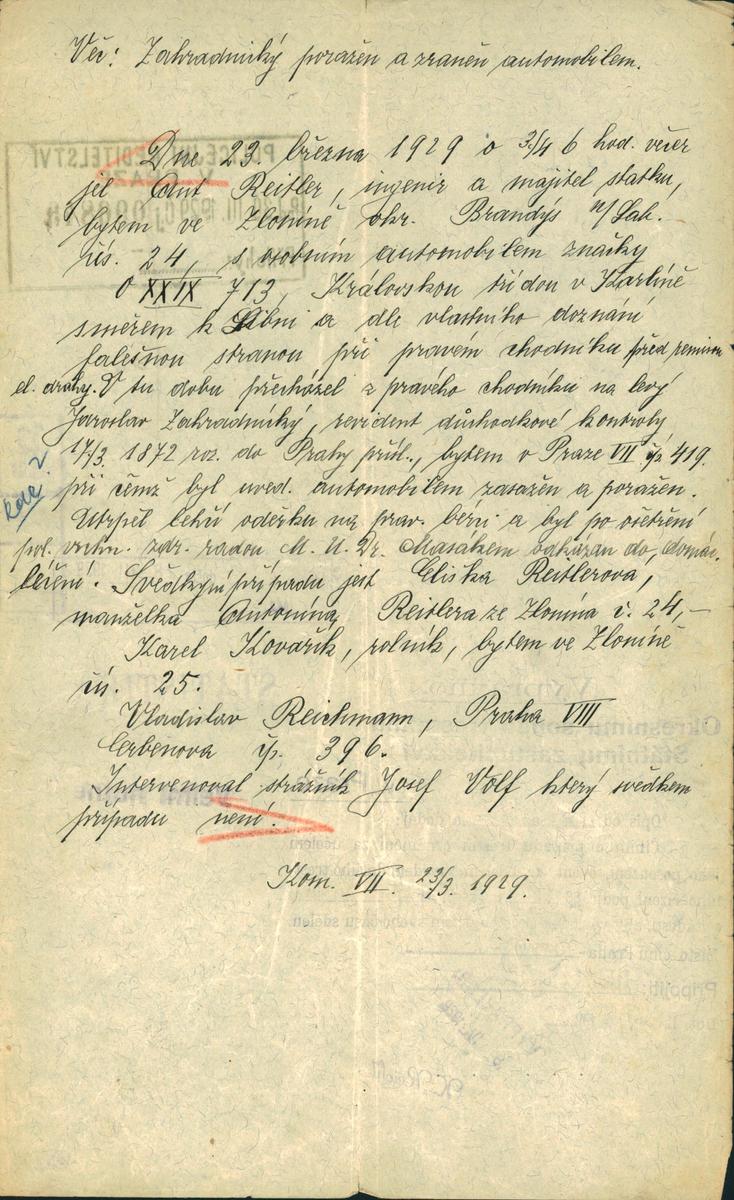 Věc: Zahradnický poražen a zraněn automobilem.
Dne 23. března 1929 o 3/4 6 hod. večer
jel Ant Reitler, ingenir a majitel statku,
bytem ve Zlonině okr. Brandýs n/Lab.
čís. 24, s osobním automobilem značky
O XXIX 713, Královskou třídou v Karlíně
směrem k Libni a dle vlastního doznání
falešnou stranou při pravém chodníku před remisou
el. dráhy. V tu dobu přecházel z pravého chodníku na levý
Jaroslav Zahradnický, revident důchodkové kontroly
17/3. 1872 roz. do Prahy přísl., bytem v Praze VII čp 419.
kde?
při čemž byl uved. automobilem zasažen a poražen.
Utrpěl lehčí oděrku na prav. bérci a byl po ošetření
pol. vrchn. zdr. radou M. U. Dr. Masákem odkázán do, domác.
léčení. Svědkyní případu jest Eliška Reitlerova,
manželka Antonína Reitlera ze Zlonína č. 24,-
Karel Kovařík, rolník, bytem ve Zlonině
čís. 25.
Vladislav Reichmann, Praha VIII
čp. 396.
Intervenoval strážník Josef Volf který svědkem
případu není.
Kom. VII. 23/3. 1929.